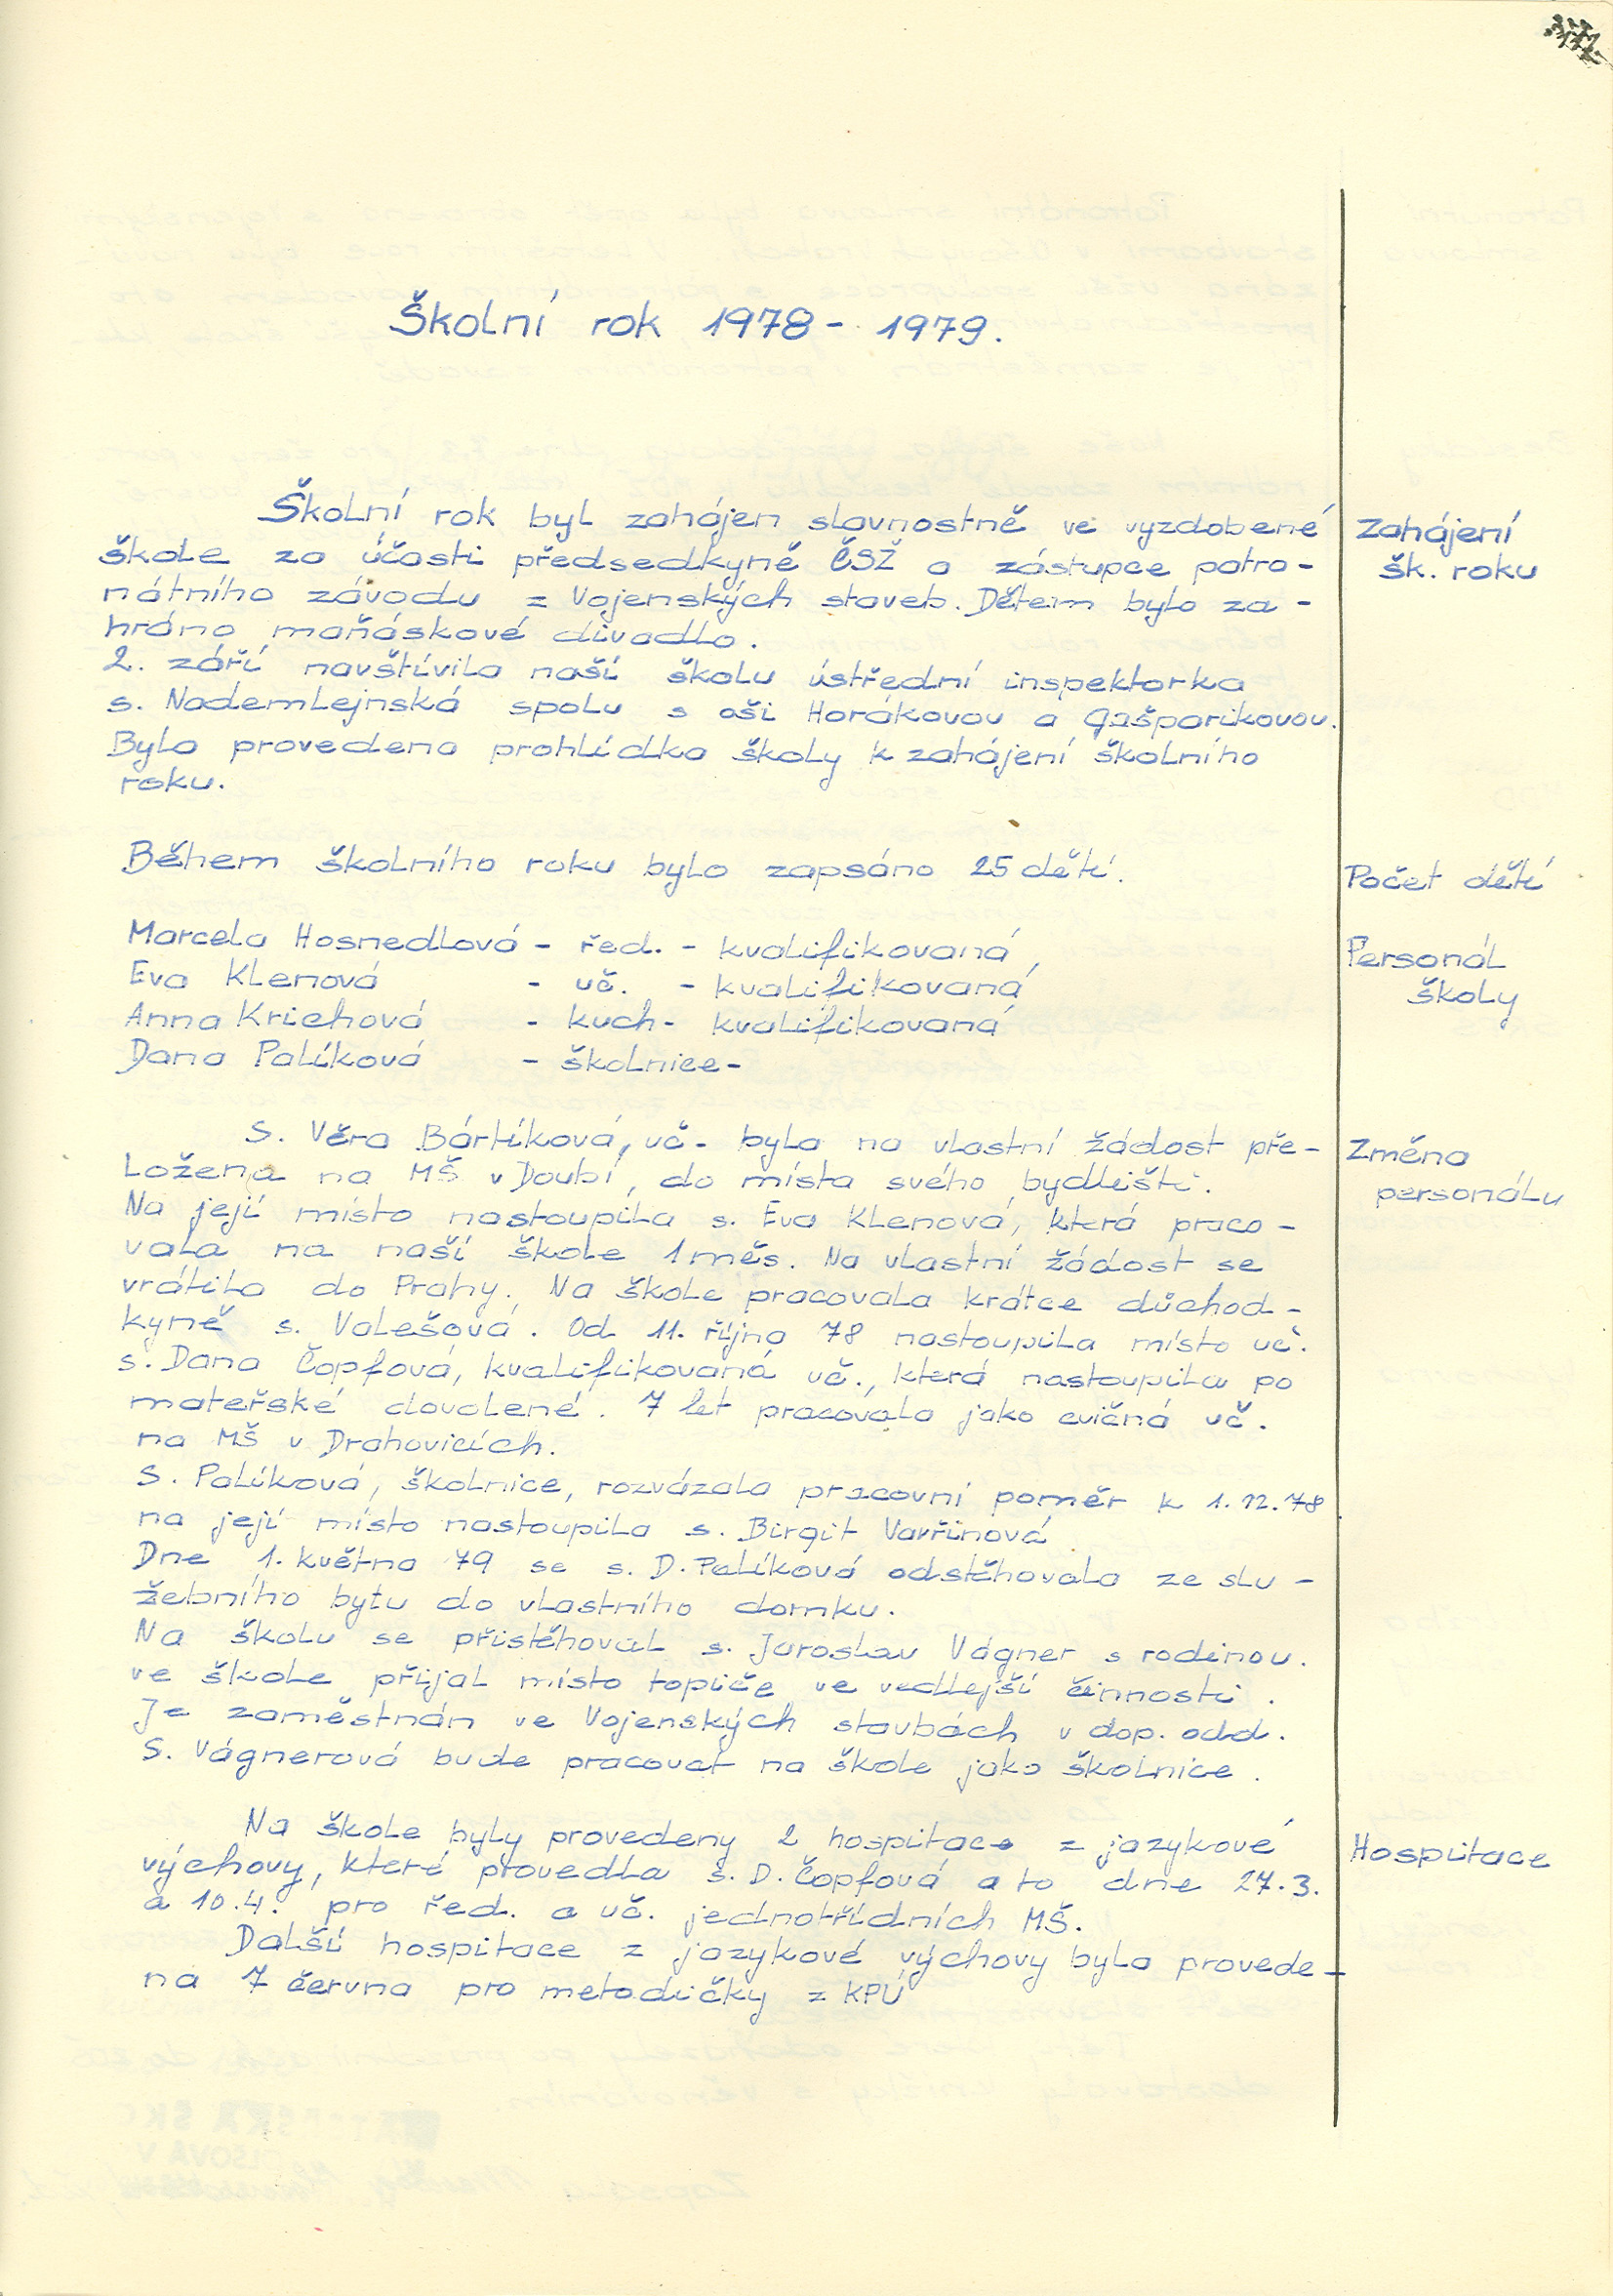 Školní rok 1978 - 1979.
Školní rok byl zahájen slavnostně ve vyzdobené
škole za účasti předsedkyně ČSŽ a zástupce patro-
nátního závodu z Vojenských staveb. Dětem bylo za-
hráno maňáskové divadlo.
2. září navštívila naši školu ústřední inspektorka
s. Nademlejnská spolu s oši Horákovou a Gašparikovou.
Byla provedena prohlídka školy k zahájení školního
roku.
Zahájení
šk. roku
Během školního roku bylo zapsáno 25 dětí.
Počet dětí
Marcela Hosnedlová - řed. - kvalifikovaná
Eva Klenová - uč. - kvalifikovaná
Anna Krichová - kuch - kvalifikovaná
Dana Palíková - školnice -
Personál
školy
S. Věra Bártíková, uč. byla na vlastní žádost pře-
ložena na MŠ v Doubí, do místa svého bydliště.
Na její místo nastoupila s. Eva Klenová, která praco-
vala na naší škole 1 měs. Na vlastní žádost se
vrátila do Prahy. Na škole pracovala krátce důchod-
kyně s. Valešová. Od 11. října 78 nastoupila místo uč.
s. Dana Čopfová, kvalifikovaná uč., která nastoupila po
mateřské dovolené. 7 let pracovala jako cvičná uč.
na MŠ v Drahovicích.
S. Palíková, školnice, rozvázala pracovní poměr k 1.12.78
na její místo nastoupila s. Birgit Vavřinová
Dne 1. května 79 se s. D. Palíková odstěhovala ze slu-
žebního bytu do vlastního domku.
Na školu se přistěhoval s. Jaroslav Vágner s rodinou.
ve škole přijal místo topiče ve vedlejší činnosti.
Je zaměstnán ve Vojenských stavbách v dop. odd.
S. Vágnerová bude pracovat na škole jako školnice.
Změna
personálu
Na škole byly provedeny 2 hospitace z jazykové
výchovy, které provedla s. D. Čopfová a to dne 27.3.
a 10.4. pro řed. a uč. jednotřídních MŠ.
Další hospitace z jazykové výchovy byla provede-
na 7 června pro metodičky z KPÚ
Hospitace